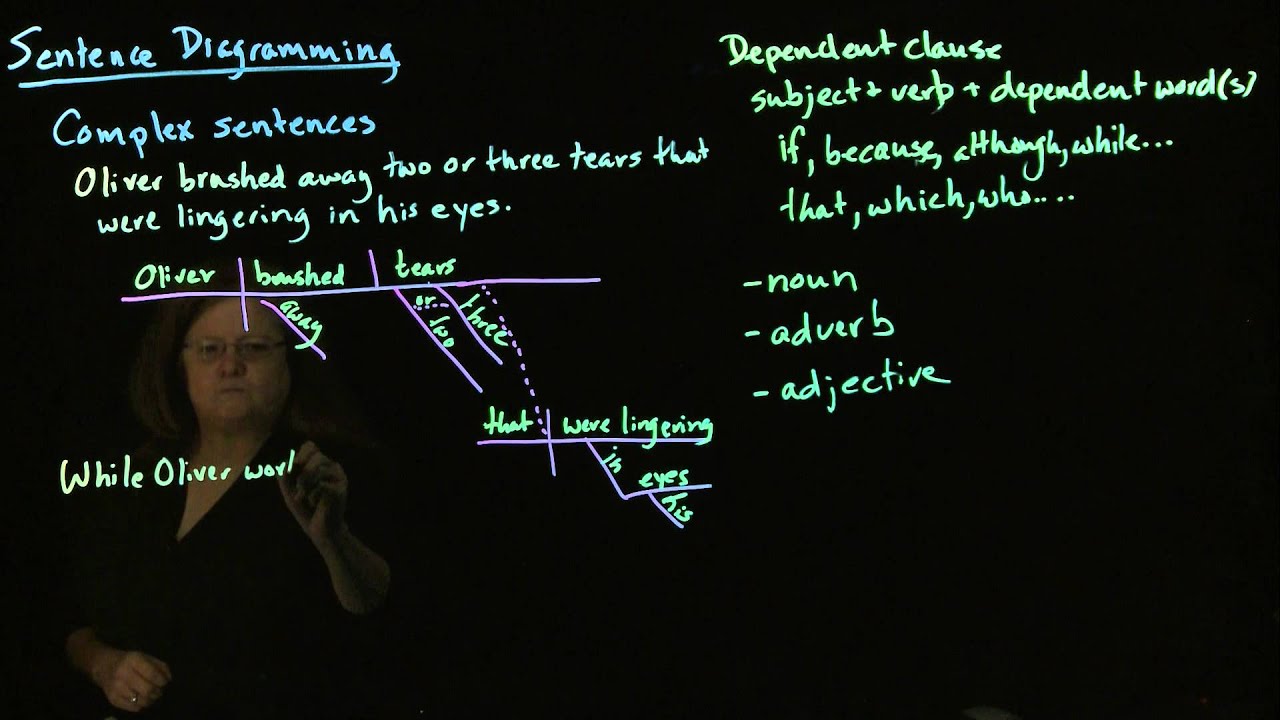 Sentence Diagramming
Complex sentences
Oliver brushed away two or three tears that
were lingering in his eyes.
Oliver brushed tears
away
or
two
three
that were lingering
in
eyes
While Oliver work
Dependent clause
subject + verb + dependent word(s)
if, because, although, while...
that, which, who....
- noun
- adverb
- adjective